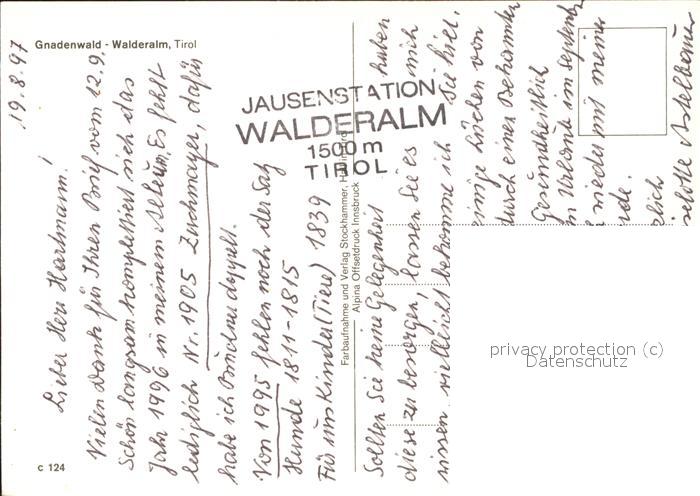 Gnadenwald - Walderalm, Tirol
19.8.97
Lieber Herr Hartmann!
Vielen Dank für Ihren Brief vom 12.9.
Schön langsam komplettiert sich das
Jahr 1996 in meinem Album. Es fehlt
lediglich Nr. 1905 Zuckmayer, dafür
habe ich Bruckner doppelt.
Von 1995 fehlen noch der Satz
Hunde 1811-1815
Für uns Kinder (Tiere) 1839
JAUSENSTATION
WALDERALM
1500 m
TIROL
Farbaufnahme und Verlag Stockhammer, Hall in Tirol
Alpina Offsetdruck Innsbruck
Sollten Sie keine Gelegenheit haben
diese zu besorgen, lassen Sie es mich
wissen, vielleicht bekomme ich sie hier.
einige Lücken von
durch einen Bekannten
Gesundheitlich
Urlaub im September
wieder mit meiner
rde.
zlich
c 124
privacy protection (c)
Datenschutz